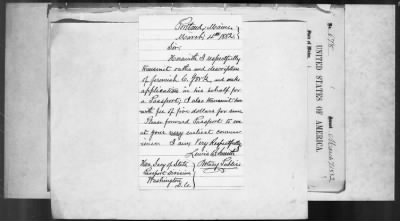 Portland Maine
March 4th 1882
Sir.
Herewith I respectfully
transmit oaths and description
of Jeremiah C. York and make
application in his behalf for
a Passport; I also transmit here
with fee of five dollars for same
Please forward Passport to me
at your very earliest conven
ience. I am Very Respectfully
Lewis
Notary Public
Hon. Secy of State
Passport Division
Washington
D.C.
No. 678
State of Maine
UNITED STATES OF AMERICA.
Issued March 7 1882